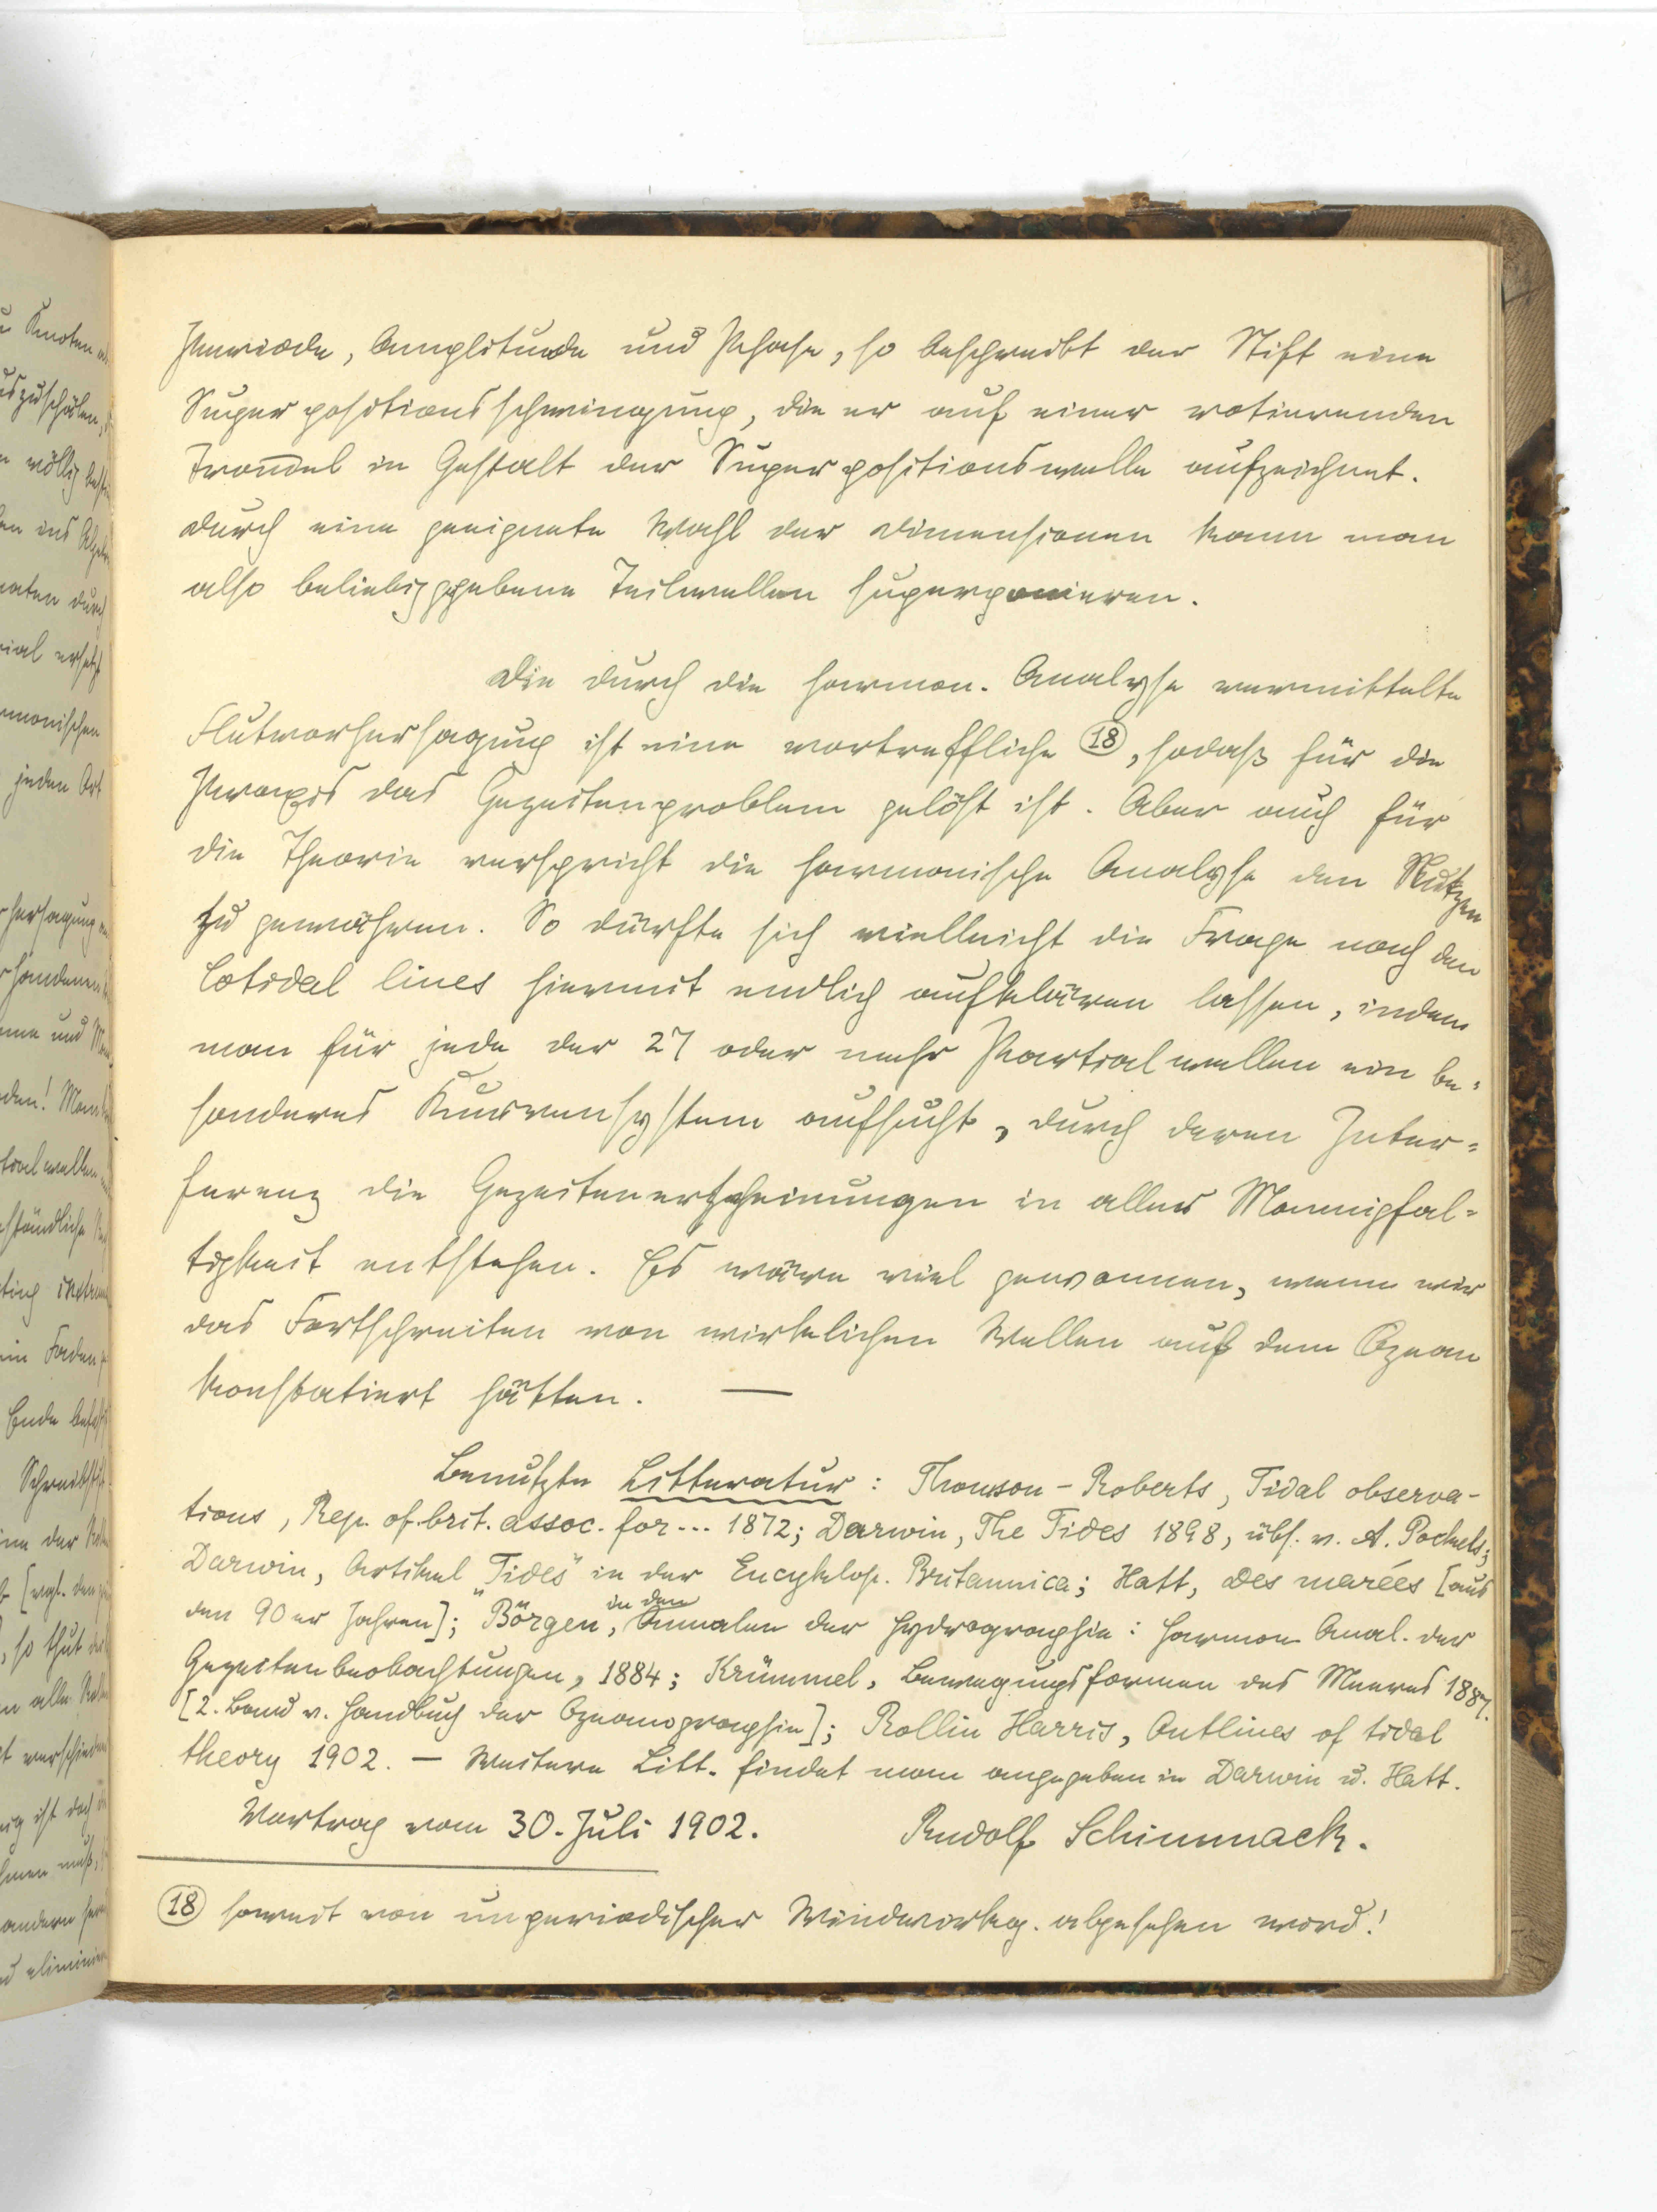 Periode, Amplitude und Phase, so beschreibt der Stift eine
Superpositionsschwingung, die er auf einer rotierenden
Trommel in Gestalt der Superpositionswelle aufzeichnet.
Durch eine geeignete Wahl der Dimensionen kann man
also beliebig gegebene Teilwellen superponieren.
Die durch die harmon. Analyse vermittelte
Flutvorhersagung ist eine vortreffliche (18), sodaß für die
Praxis das Gezeitenproblem gelöst ist. Aber auch für
die Theorie verspricht die harmonische Analyse den Nutzen
zu gewähren. So dürfte sich vielleicht die Frage nach den
Cotidal lines hiermit endlich aufklären lassen, indem
man für jede der 27 oder mehr Partialwellen ein be-
sonderes Kurvensystem aufsucht, durch deren Inter-
ferenz die Gezeitenerscheinungen in aller Mannigfal-
tigkeit entstehen. Es wäre viel gewonnen, wenn wir
das Fortschreiten von wirklichen Wellen auf dem Ozean
konstatiert hätten. —
Benutzte Litteratur: Thomson-Roberts, Tidal observa-
tions, Rep. of brit. assoc. for... 1872; Darwin, The Tides 1898, übs. v. A. Pockels;
Darwin, Artikel „Tides" in der Encyklop. Britannica; Hatt, Des marées [aus
den 90er Jahren]; Börgen, in den Annalen der Hydrographie: Harmon. Anal. der
Gezeitenbeobachtungen, 1884; Krümmel, Bewegungsformen des Meeres 1887.
[2. Band v. Handbuch der Ozeanographie]; Rollin Harris, Outlines of tidal
theory 1902. — Weitere Litt. findet man angegeben in Darwin u. Hatt.
Vortrag vom 30. Juli 1902. Rudolf Schimmack.
(18) soweit von unperiodischer Windwirkg. abgesehen wird!